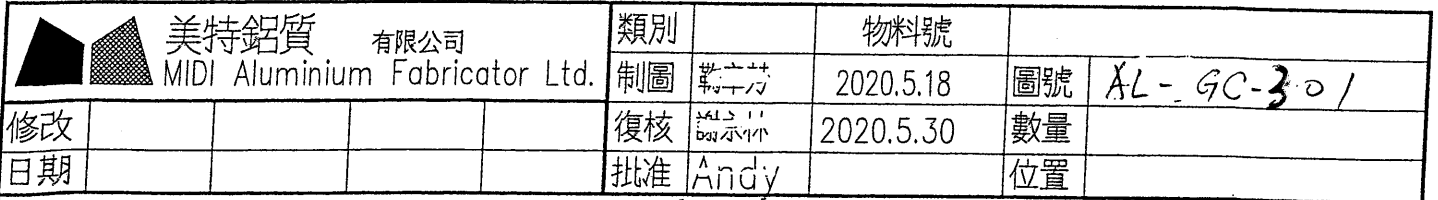 美特鋁質 有限公司
MIDI Aluminium Fabricator Ltd.
類別 物料號
制圖 2020.5.18 圖號 AL-GC-301
修改 復核 謝永林 2020.5.30 數量
日期 批准 Andy 位置